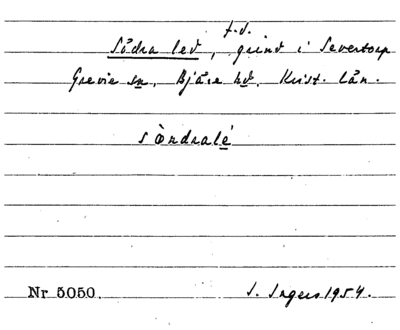 t.d.
Södra led, grind i Severtorp
Grevie sn, Bjäre hd, Krist. län.
sòndralé
Nr 5050. S. Ingers 1954.